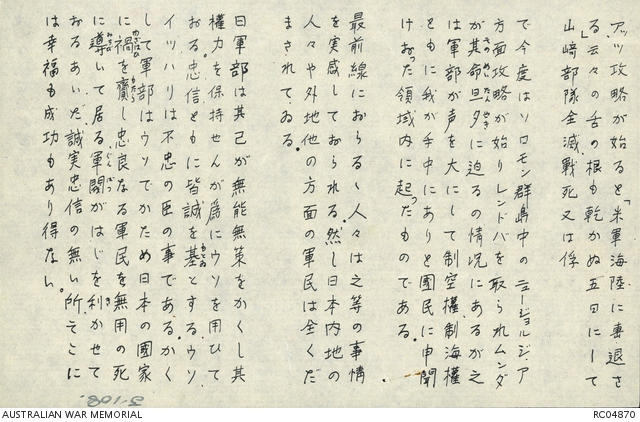 アッツ攻略が始ると「米軍海陸に妻退さ
る云々の舌の根も乾かぬ五日にして
山﨑部隊全滅、戰死又は俘
で今度はソロモン群島中のニュージョルジア
方面攻略が始りレンドバを取られムンダ
が其命旦夕に迫るの情況にあるが之
は軍部が声を大にして制空權制海權
ともに我が手中にありと國民に申聞
けおった領域内に起ったものである。
最前線におらるゝ人々は之等の事情
を実感しておられる。然し日本内地の
人々や外地他の方面の軍民は全くだ
まされてゐる。
日軍部は其己が無能無策をかくし其
權力を保持せんが爲にウソを用ひて
おる。忠信ともに皆誠を基とするウソ
イツハリは不忠の臣の事である。かく
して軍部はウソでかため日本の國家
に禍を齎し忠良なる軍民を無用の死
に導いて居る軍閥がはじを利かせて
おるあいだ、誠実忠信の無い所そこに
は幸福も成功もあり得ない。
J-108
AUSTRALIAN WAR MEMORIAL
RC04870